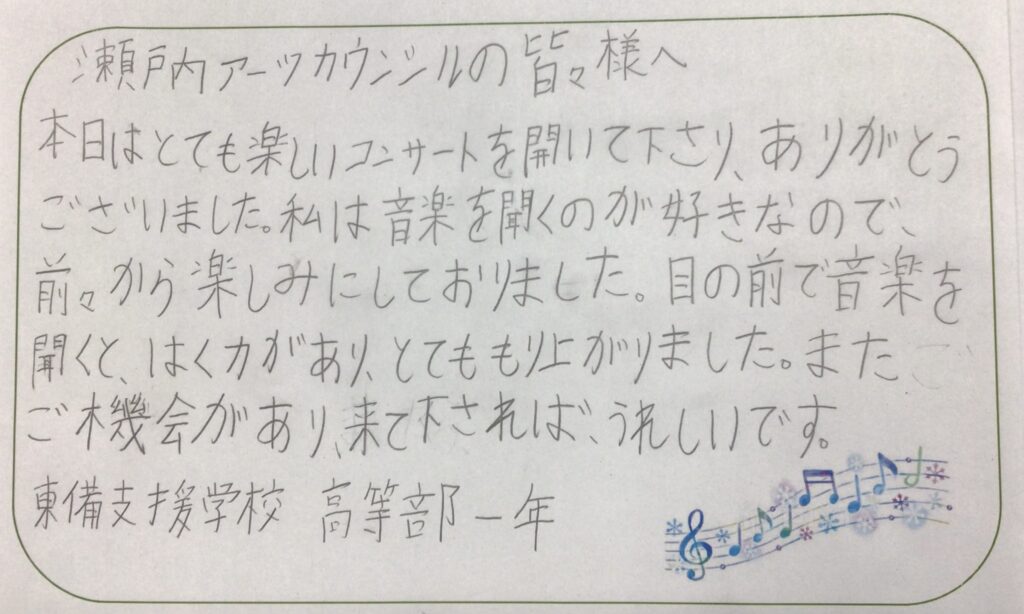 瀬戸内アーツカウンシルの皆々様へ
本日はとても楽しいコンサートを開いて下さり、ありがとう
ございました。私は音楽を聞くのが好きなので、
前々から楽しみにしておりました。目の前で音楽を
聞くと、はく力があり、とてももり上がりました。また
ご機会があり、来て下されば、うれしいです。
東備支援学校 高等部一年